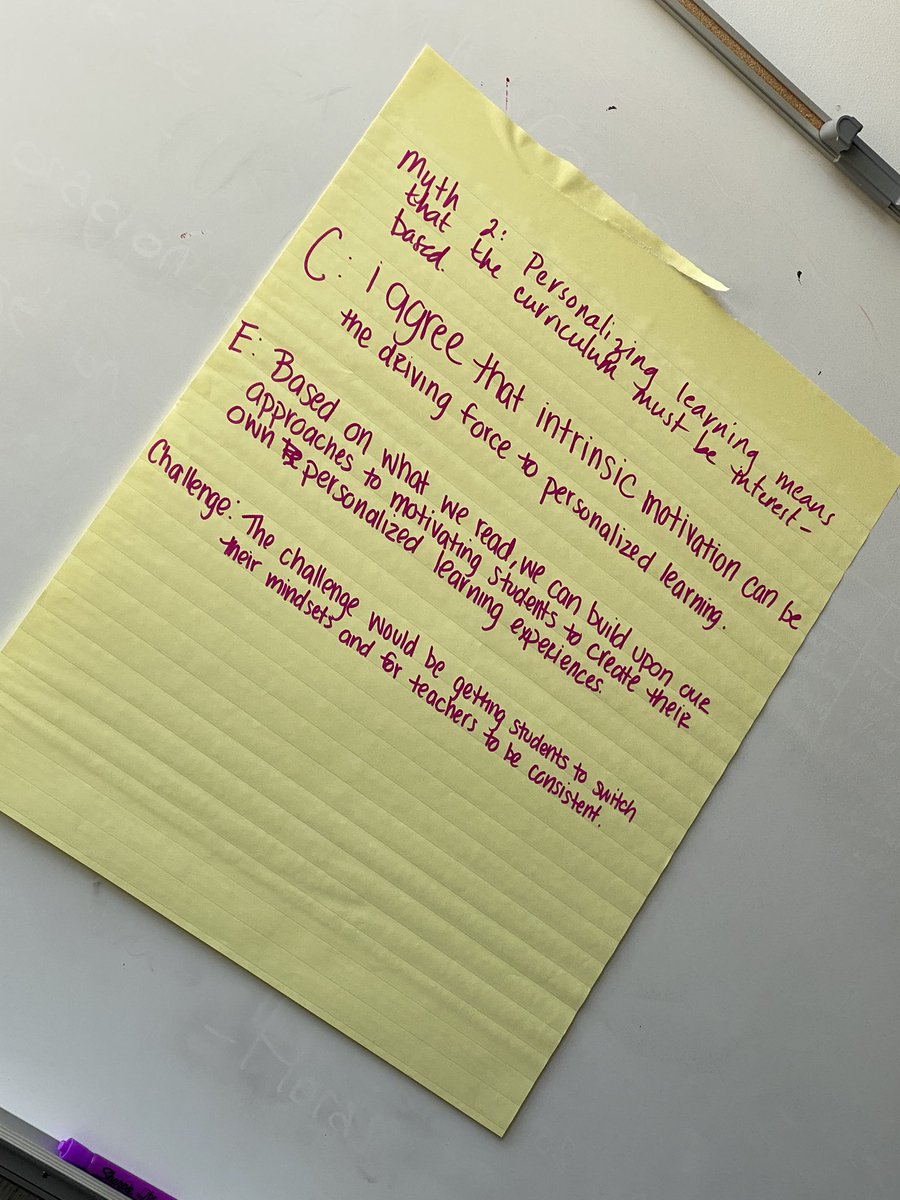 Myth 2: Personalizing learning means
that the curriculum must be interest-
based.
C: i agree that intrinsic motivation can be
the driving force to personalized learning.
E: Based on what we read, we can build upon our
approaches to motivating students to create their
own personalized learning experiences.
Challenge: The challenge would be getting students to switch
their mindsets and for teachers to be consistent.